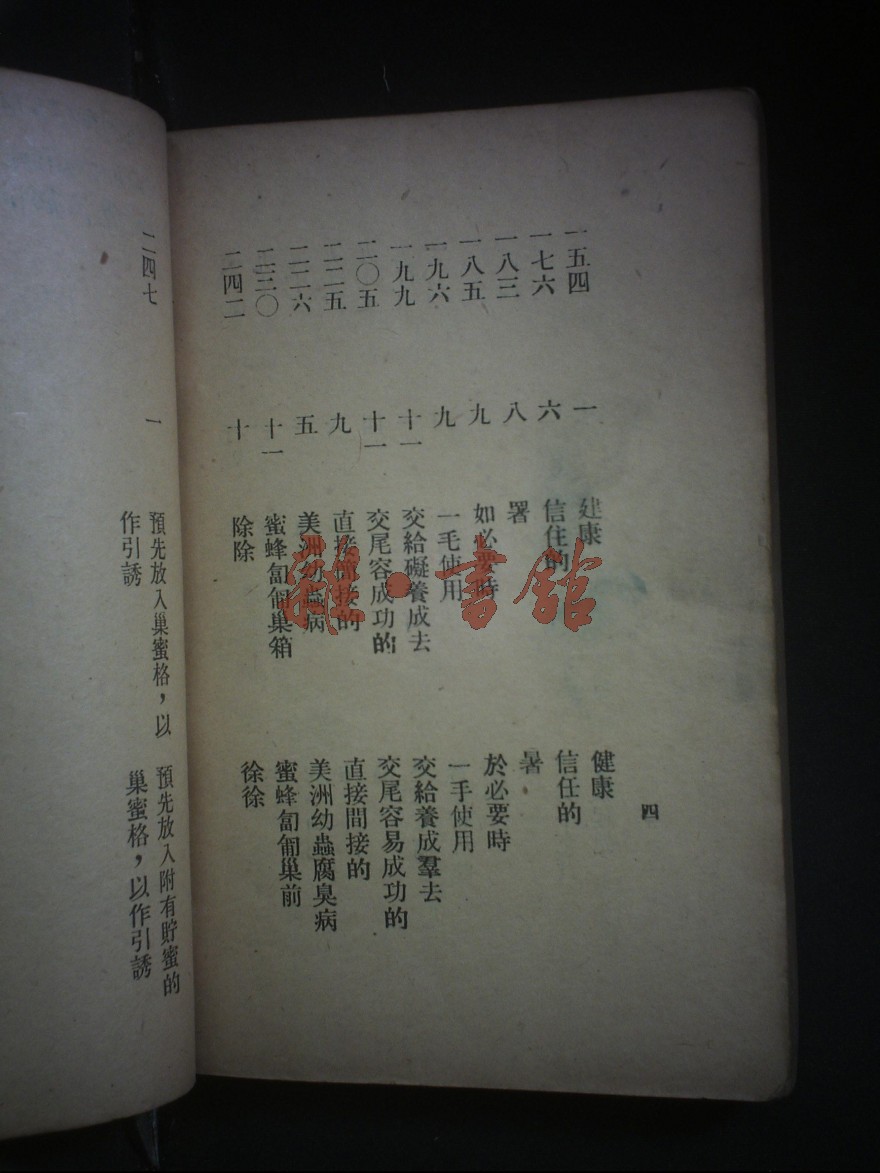 四
一五四 一 建康 健康
一七六 六 信住的 信任的
一八三 八 署 暑
一八五 九 如必要時 於必要時
一九六 九 一毛使用 一手使用
一九九 十一 交給礙養成去 交給養成羣去
二〇五 十一 交尾容成功的 交尾容易成功的
二二五 九 直接簡接的 直接間接的
二二六 五 美洲幼蟲病 美洲幼蟲腐臭病
二三〇 十一 蜜蜂匐匍巢箱 蜜蜂匐匍巢前
二四二 十 除除 徐徐
二四七 一 預先放入巢蜜格，以 預先放入附有貯蜜的
作引誘 巢蜜格，以作引誘
雜·書館